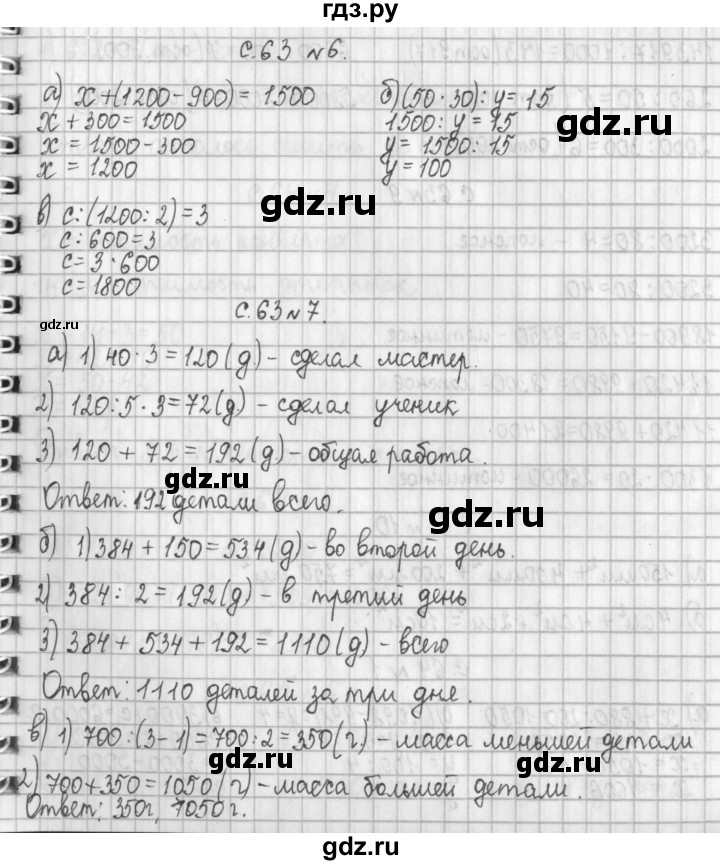 гдз.ру
с.63 №6.
а) х+(1200-900)=1500
х+300=1500
х=1500-300
х=1200
б)(50·30):у=15
1500:у=15
у=1500:15
у=100
gdz.ru
gdz.ru
в) с:(1200:2)=3
с:600=3
с=3·600
с=1800
с.63 №7.
gdz.ru
а) 1) 40·3=120(д) - сделал мастер.
gdz.ru
2) 120:5·3=72(д) - сделал ученик
3) 120+72=192(д) - общая работа.
gdz.ru
Ответ: 192 детали всего.
gdz.ru
б) 1) 384+150=534(д) - во второй день.
gdz.ru
2) 384:2=192(д) - в третий день
3) 384+534+192=1110(д) - всего
gdz.ru
Ответ: 1110 деталей за три дне.
в) 1) 700:(3-1)=700:2=350(г) - масса меньшей детали
gdz.ru
gdz.ru
2) 700+350=1050(г) - масса большей детали.
Ответ: 350г, 1050г.
gdz.ru